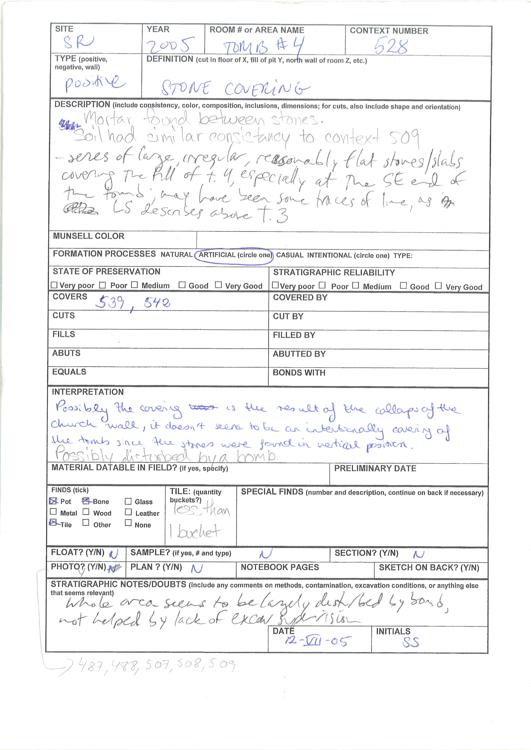 SITE YEAR ROOM # or AREA NAME CONTEXT NUMBER
SR 2005 TOMB #4 528
TYPE (positive, negative, wall) DEFINITION (cut in floor of X, fill of pit Y, north wall of room Z, etc.)
positive STONE COVERING
DESCRIPTION (include consistency, color, composition, inclusions, dimensions; for cuts, also include shape and orientation)
Mortar found between stones.
Soil had similar consistancy to context 509
- series of large, irregular, reasonably flat stones/slabs
covering the fill of t. 4, especially at the SE end of
the tomb; may have been some traces of lime, as
LS describes above T.3
MUNSELL COLOR
FORMATION PROCESSES NATURAL ARTIFICIAL (circle one) CASUAL INTENTIONAL (circle one) TYPE:
STATE OF PRESERVATION STRATIGRAPHIC RELIABILITY
Very poor Poor Medium Good Very Good Very poor Poor Medium Good Very Good
COVERS 539, 542 COVERED BY
CUTS CUT BY
FILLS FILLED BY
ABUTS ABUTTED BY
EQUALS BONDS WITH
INTERPRETATION
Possibly the covering is the result of the collaps of the
church wall, it doesn't seem to be an intentionally covering of
the tombs since the stones were found in vertical position.
Possibly disturbed by a bomb.
MATERIAL DATABLE IN FIELD? (if yes, specify) PRELIMINARY DATE
FINDS (tick) TILE: (quantity buckets?) SPECIAL FINDS (number and description, continue on back if necessary)
Pot Bone Glass less than
Metal Wood Leather 1 bucket
Tile Other None
FLOAT? (Y/N) N SAMPLE? (if yes, # and type) N SECTION? (Y/N) N
PHOTO? (Y/N) PLAN ? (Y/N) N NOTEBOOK PAGES SKETCH ON BACK? (Y/N)
STRATIGRAPHIC NOTES/DOUBTS (Include any comments on methods, contamination, excavation conditions, or anything else that seems relevant)
whole area seems to be largely disturbed by bomb,
not helped by lack of excav supervision
DATE INITIALS
12-VII-05 SS
487, 488, 507, 508, 509